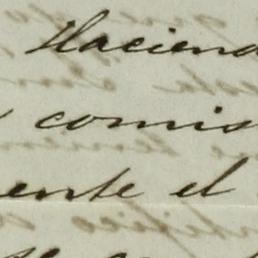 Haciend
comis
ente el